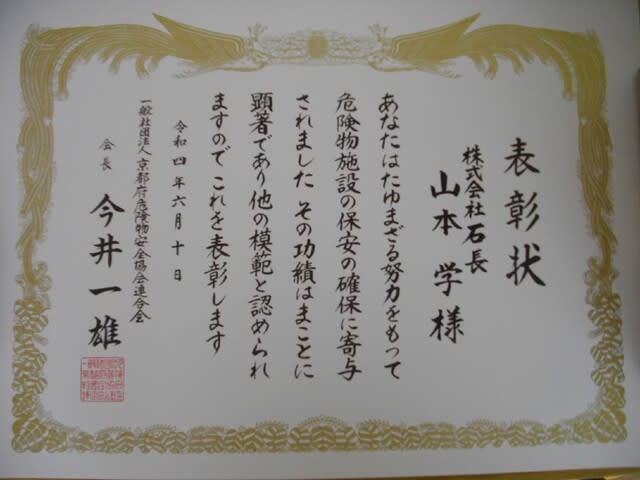 表彰状
株式会社石長
山本学様
あなたはたゆまざる努力をもって
危険物施設の保安の確保に寄与
されました その功績はまことに
顕著であり他の模範と認められ
ますので これを表彰します
令和四年六月十日
一般社団法人京都府危険物安全協会連合会
会長 今井一雄